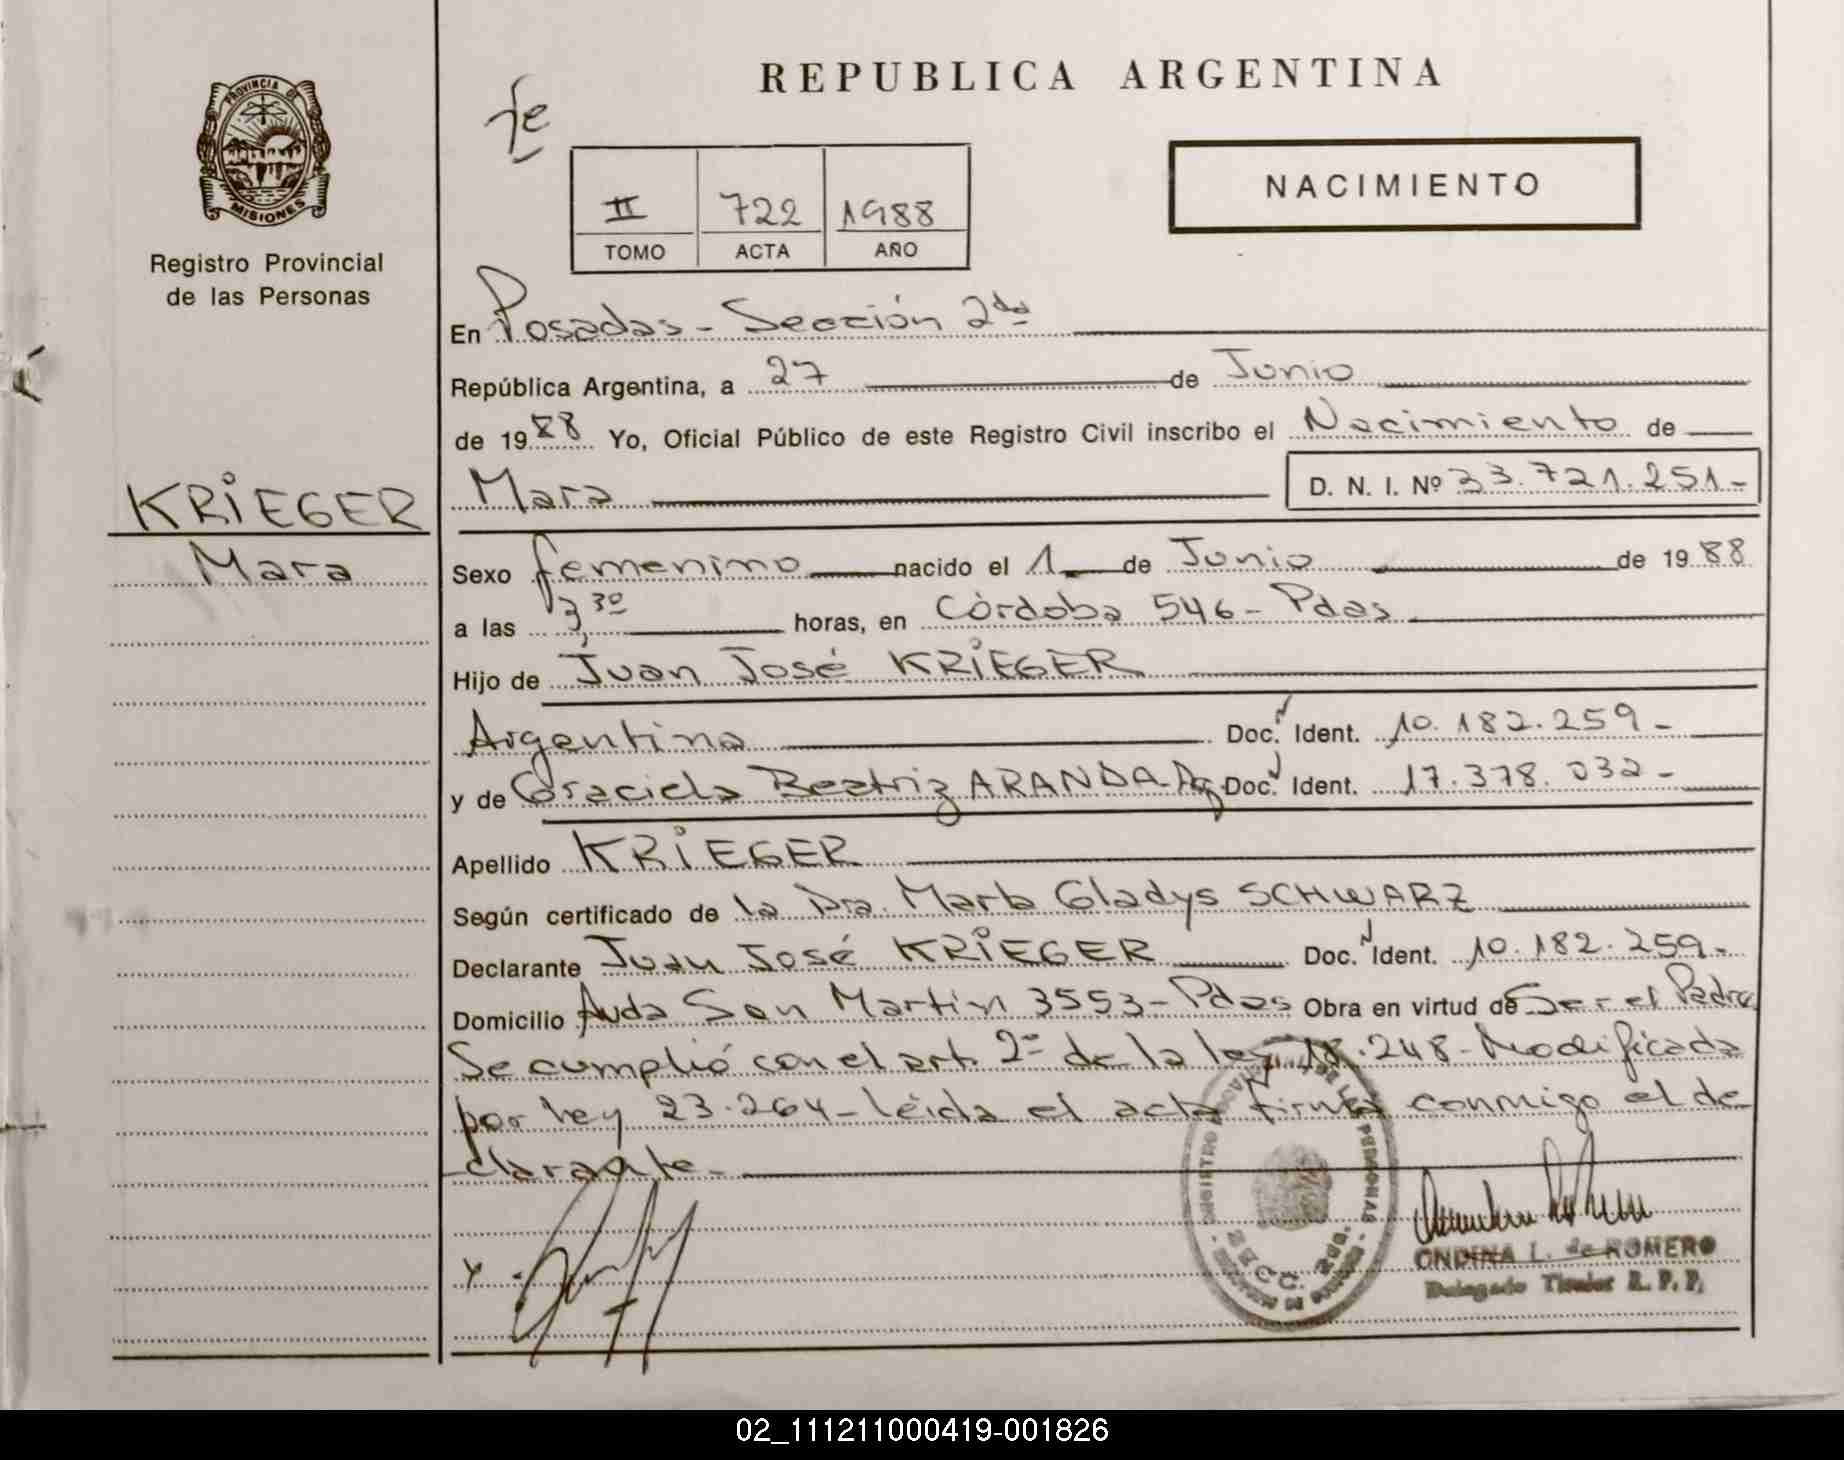 REPUBLICA ARGENTINA
PROVINCIA DE
MISIONES
Registro Provincial
de las Personas
fe
NACIMIENTO
II 722 1988
TOMO ACTA AÑO
En Posadas - Sección 2da
República Argentina, a 27 de Junio
de 1988 Yo, Oficial Público de este Registro Civil inscribo el Nacimiento de
Mara D. N. I. Nº 33.721.251-
KRIEGER
Mara
Sexo femenino nacido el 1 de Junio de 1988
a las 3,30 horas, en Córdoba 546- Pdas
Hijo de Juan José KRIEGER
Argentino Doc. Ident. 10.182.259-
y de Graciela Beatriz ARANDA Ag. Doc. Ident. 17.378.032-
Apellido KRIEGER
Según certificado de la Dra. Marta Gladys SCHWARZ
Declarante Juan José KRIEGER Doc. Ident. 10.182.259-
Domicilio Avda San Martín 3553- Pdas Obra en virtud de Ser el Padre
Se cumplió con el art. 2º de la ley 18.248- Modificada
por ley 23.264- léida el acta firma conmigo el de
clarante-
SECC. 2da.
ONDINA L. de ROMERO
Delegado Titular R. P. P.
02_111211000419-001826